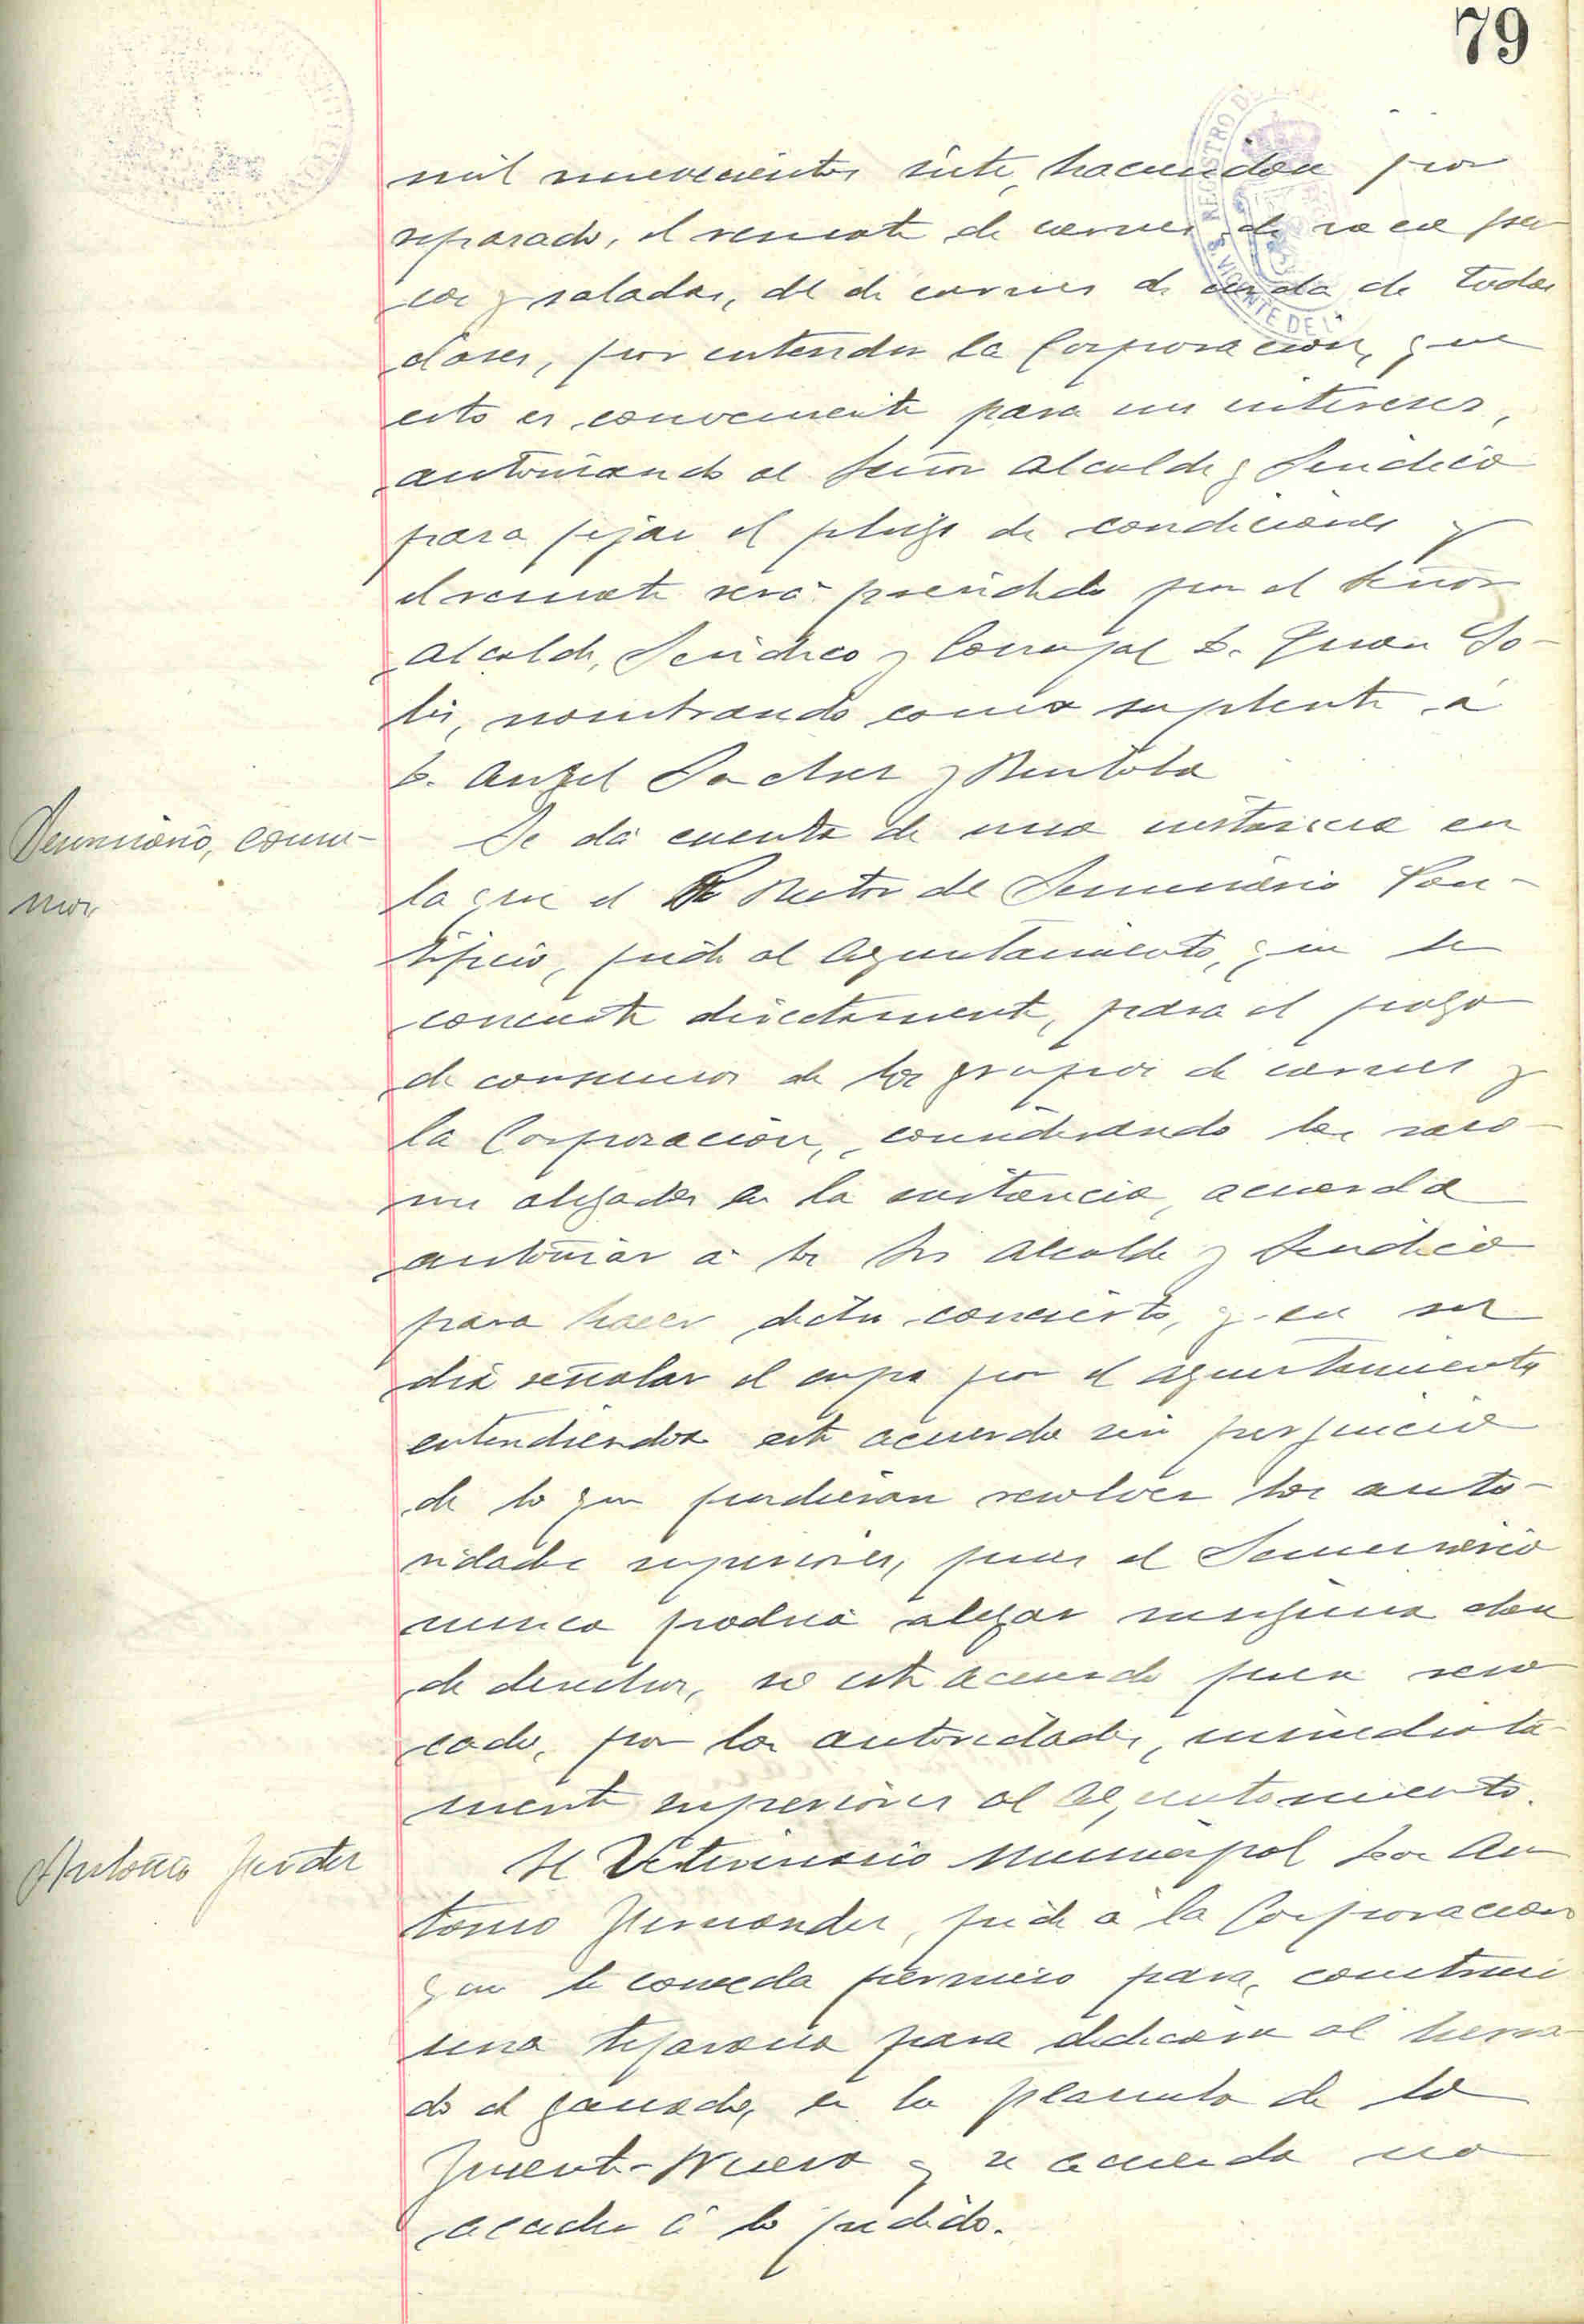 79
mil novecientos siete, haciendose por
separado, el remate de carnes de vaca fres-
cas y saladas, del de carnes de cerda de todas
clases, por entender la Corporacion, que
esto es conveniente para sus intereses,
autorizando al Señor Alcalde y Sindico
para fijar el pliego de condiciones y
el remate será presidido por el Señor
Alcalde, Sindico y Concejal D. Juan So-
lis, nombrando como suplente á
D. Angel Sanchez y Rentola
Seminario, consu-
mos
Se dá cuenta de una instancia en
la que el Rector del Seminario Pon-
tificio, pide al Ayuntamiento, que se
concierte directamente, para el pago
de consumos de los grupos de carnes y
la Corporacion, considerando las razo-
nes alegadas en la instancia, acuerda
autorizar á los Srs Alcalde y Sindico
para hacer dicho concierto, y en su
dia señalar el cupo por el Ayuntamiento
entendiendose este acuerdo sin perjuicio
de lo que pudieran resolver las auto-
ridades superiores, pues el Seminario
nunca podria alegar ninguna clase
de derechos, si este acuerdo fuera revo-
cado, por las autoridades, inmediata-
mente superiores al Ayuntamiento.
Antonio Hernder
El Veterinario Municipal Don An
tonio Hernandez, pide á la Corporacion
que le conceda permiso para, construir
una tejavana para dedicarla al herra-
do de ganado, en la plazuela de la
Fuente-Nueva y se acuerda no
acceder á lo pedido.
REGISTRO DE
S. VICENTE DE L